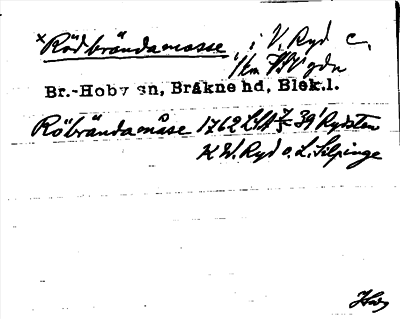 ×Rödbrändamosse i V. Ryd c.
Br.-Hoby sn, Bräkne hd, Blek.l.
Röbrändamåse 1762 39 Rydsten
K W. Ryd o. L. Silpinge